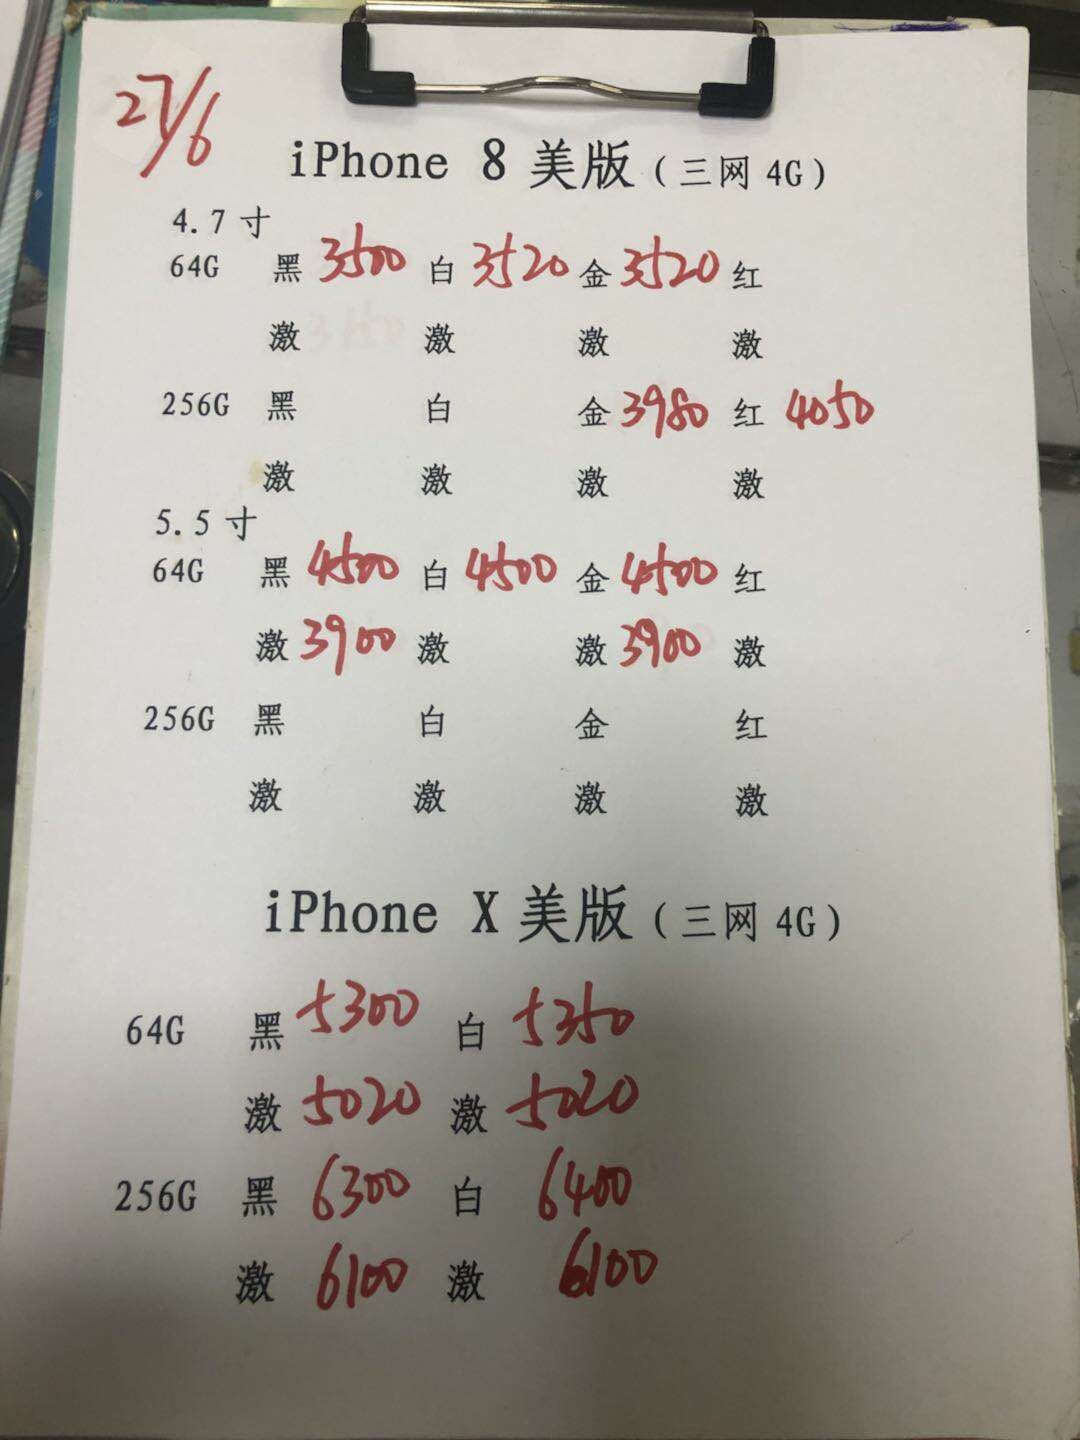 27/6
iPhone 8 美版（三网 4G）
4.7 寸
64G 黑 3500 白 3520 金 3520 红
激 激 激 激
256G 黑 白 金 3980 红 4050
激 激 激 激
5.5 寸
64G 黑 4500 白 4500 金 4500 红
激 3900 激 激 3900 激
256G 黑 白 金 红
激 激 激 激
iPhone X 美版（三网 4G）
64G 黑 5300 白 5350
激 5020 激 5020
256G 黑 6300 白 6400
激 6100 激 6100